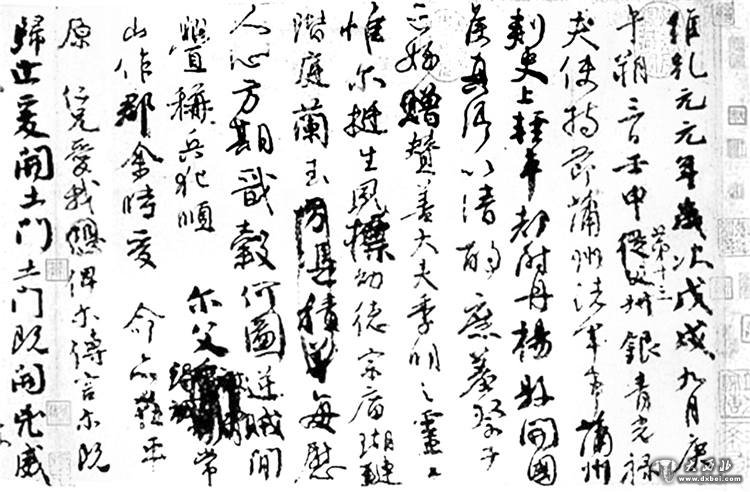 維乾元元年歲次戊戌九月庚
午朔三日壬申第十三從父銀青光祿
夫使持節蒲州諸軍事蒲州
刺史上輕車都尉丹楊縣開國
侯真卿以清酌庶羞祭于
亡姪贈贊善大夫季明之靈曰
惟爾挺生夙標幼德宗廟瑚璉
階庭蘭玉每慰
人心方期戩穀何圖逆賊閒
釁稱兵犯順爾父竭誠常
山作郡余時受命亦在平
原仁兄愛我俾爾傳言爾既
歸止爰開土門土門既開兇威
大西北
www.dxbei.com